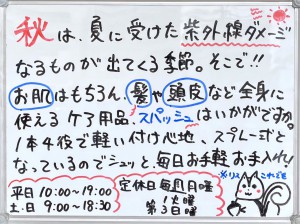 秋は、夏に受けた紫外線ダメージ
なるものが出てくる季節。そこで!!
お肌はもちろん、髪や頭皮など全身に
使えるケア用品、スパッシュはいかがですか。
1本4役で軽い付け心地、スプレー式と
なっているのでシュッと毎日お手軽お手入れ!
平日10:00~19:00
土.日 9:00~18:30
定休日 毎週月曜
1火曜
第3日曜
※リス これでも